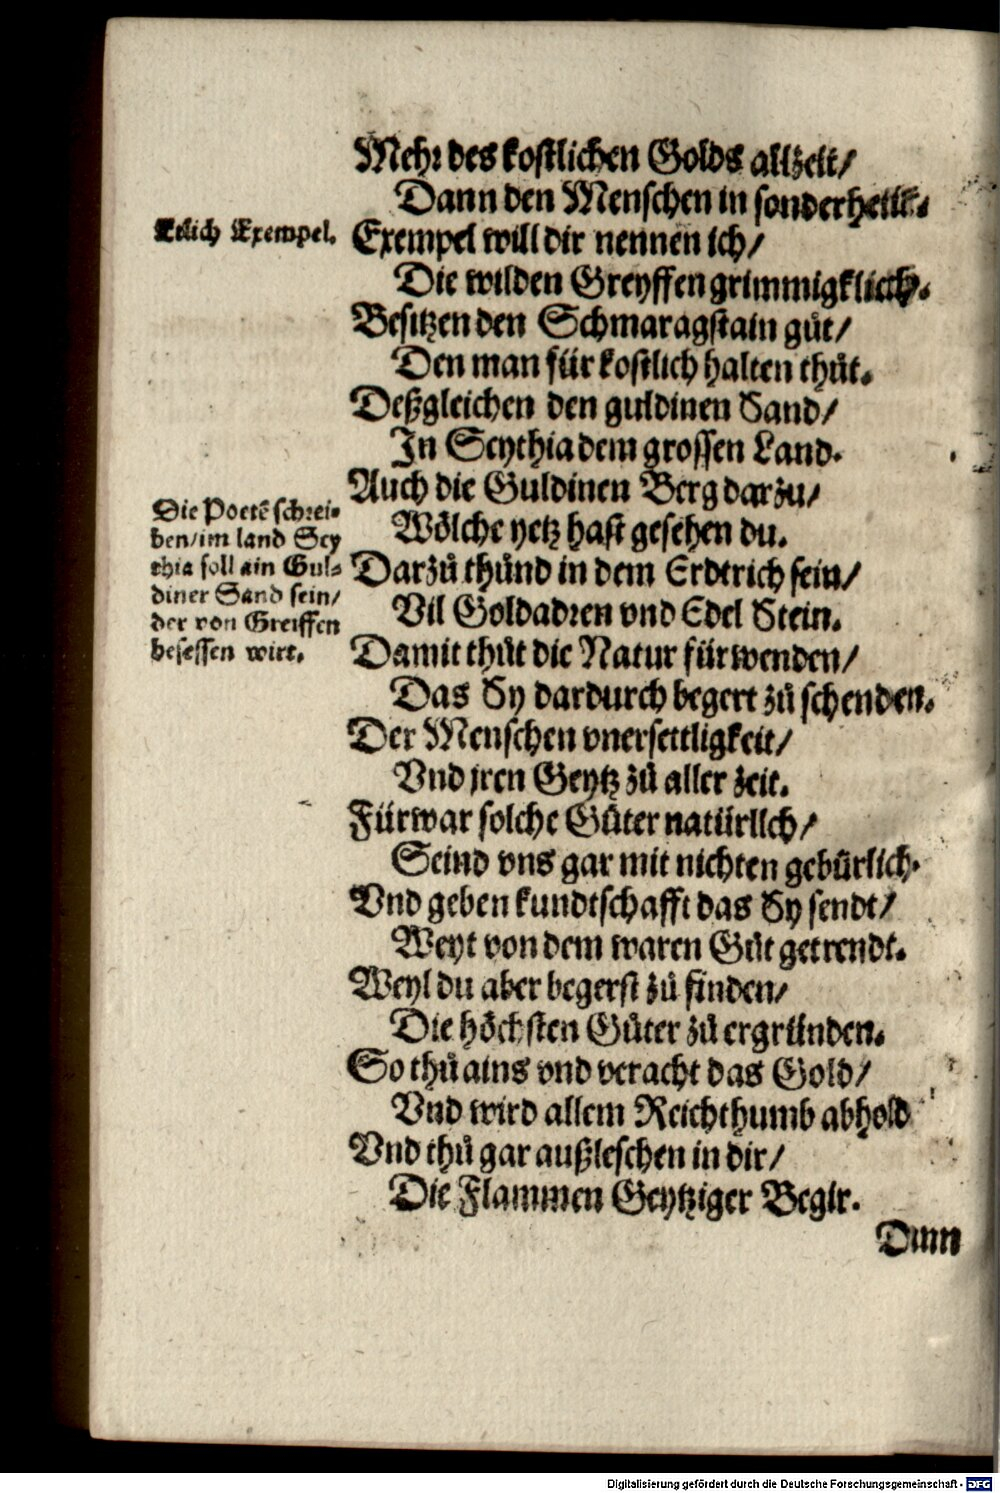 Mehr des kostlichen Golds allzeit/
Dann den Menschen in sonderheitk.
Etlich Exempel.
Exempel will dir nennen ich/
Die wilden Greyffen grimmigklich.
Besitzen den Schmaragstain gůt/
Den man für kostlich halten thůt.
Deßgleichen den guldinen Sand/
In Scythia dem grossen Land.
Auch die Guldinen Berg darzu/
Wölche yetz hast gesehen du.
Die Poetẽ schrei-
ben/im land Scy
thia soll ain Gul-
diner Sand sein/
der von Greiffen
besessen wirt.
Darzů thůnd in dem Erdtrich sein/
Vil Goldadren vnd Edel Stein.
Damit thůt die Natur fürwenden/
Das Sy dardurch begert zů schenden.
Der Menschen vnersettligkeit/
Vnd jren Geytz zů aller zeit.
Fürwar solche Gůter natürlich/
Seind vns gar mit nichten gebürlich.
Vnd geben kundtschafft das Sy sendt/
Weyt von dem waren Gůt getrendt.
Weyl du aber begerst zů finden/
Die höchsten Gůter zů ergründen.
So thů ains vnd veracht das Gold/
Vnd wird allem Reichthumb abhold
Vnd thů gar außleschen in dir/
Die Flammen Geytziger Begir.
Dann
Digitalisierung gefördert durch die Deutsche Forschungsgemeinschaft - DFG